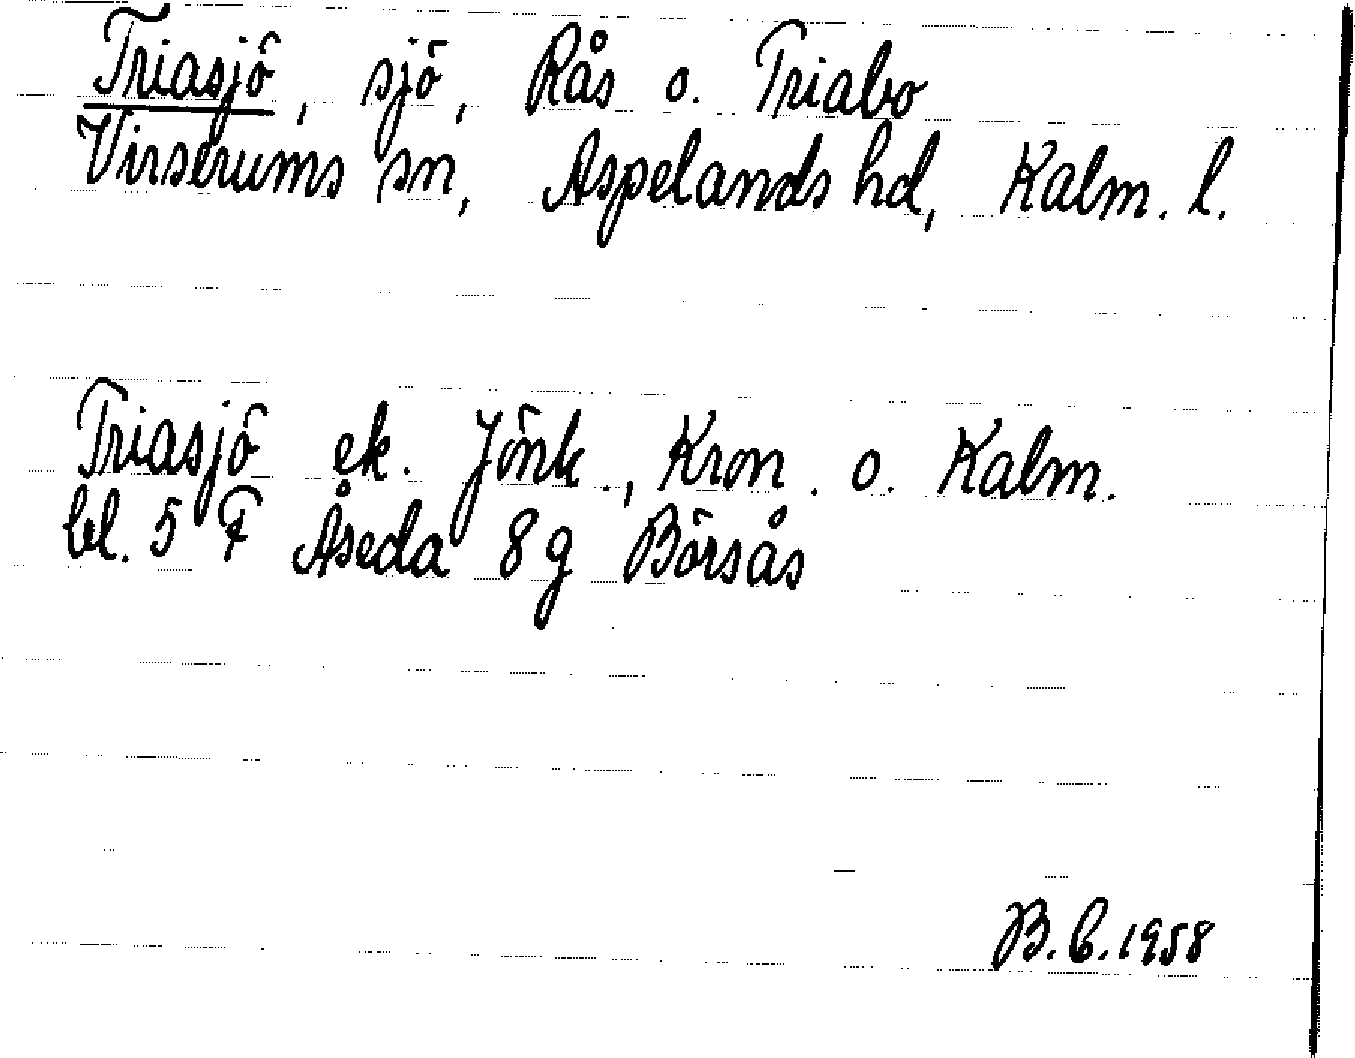 Triasjö, sjö, Rås o. Triabo
Virserums sn, Aspelands hd, Kalm. l.
Triasjö ek. Jönk., Kron. o. Kalm.
bl. 5 F Åseda 8g Börsås
B.b.1958